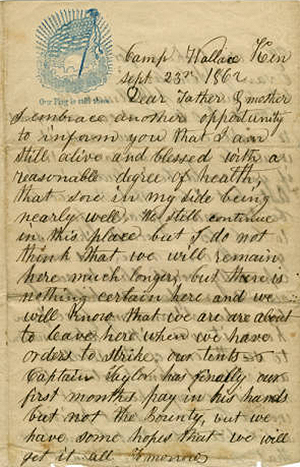 Our Flag is still there
Camp Wallace Ken
Sept. 23rd 1862
Dear Father & mother
I embrace another opportunity
to inform you that I am
still alive and blessed with a
reasonable degree of health,
that sore in my side being
nearly well, We still continue
in this place but I do not
think that we will remain
here much longer, but there is
nothing certain here and we
will know that we are are about
to leave here when we have
orders to strike our tents
Captain Taylor has finally our
first months pay in his hands
but not the Bounty, but we
have some hopes that we will
get it all tomorrow